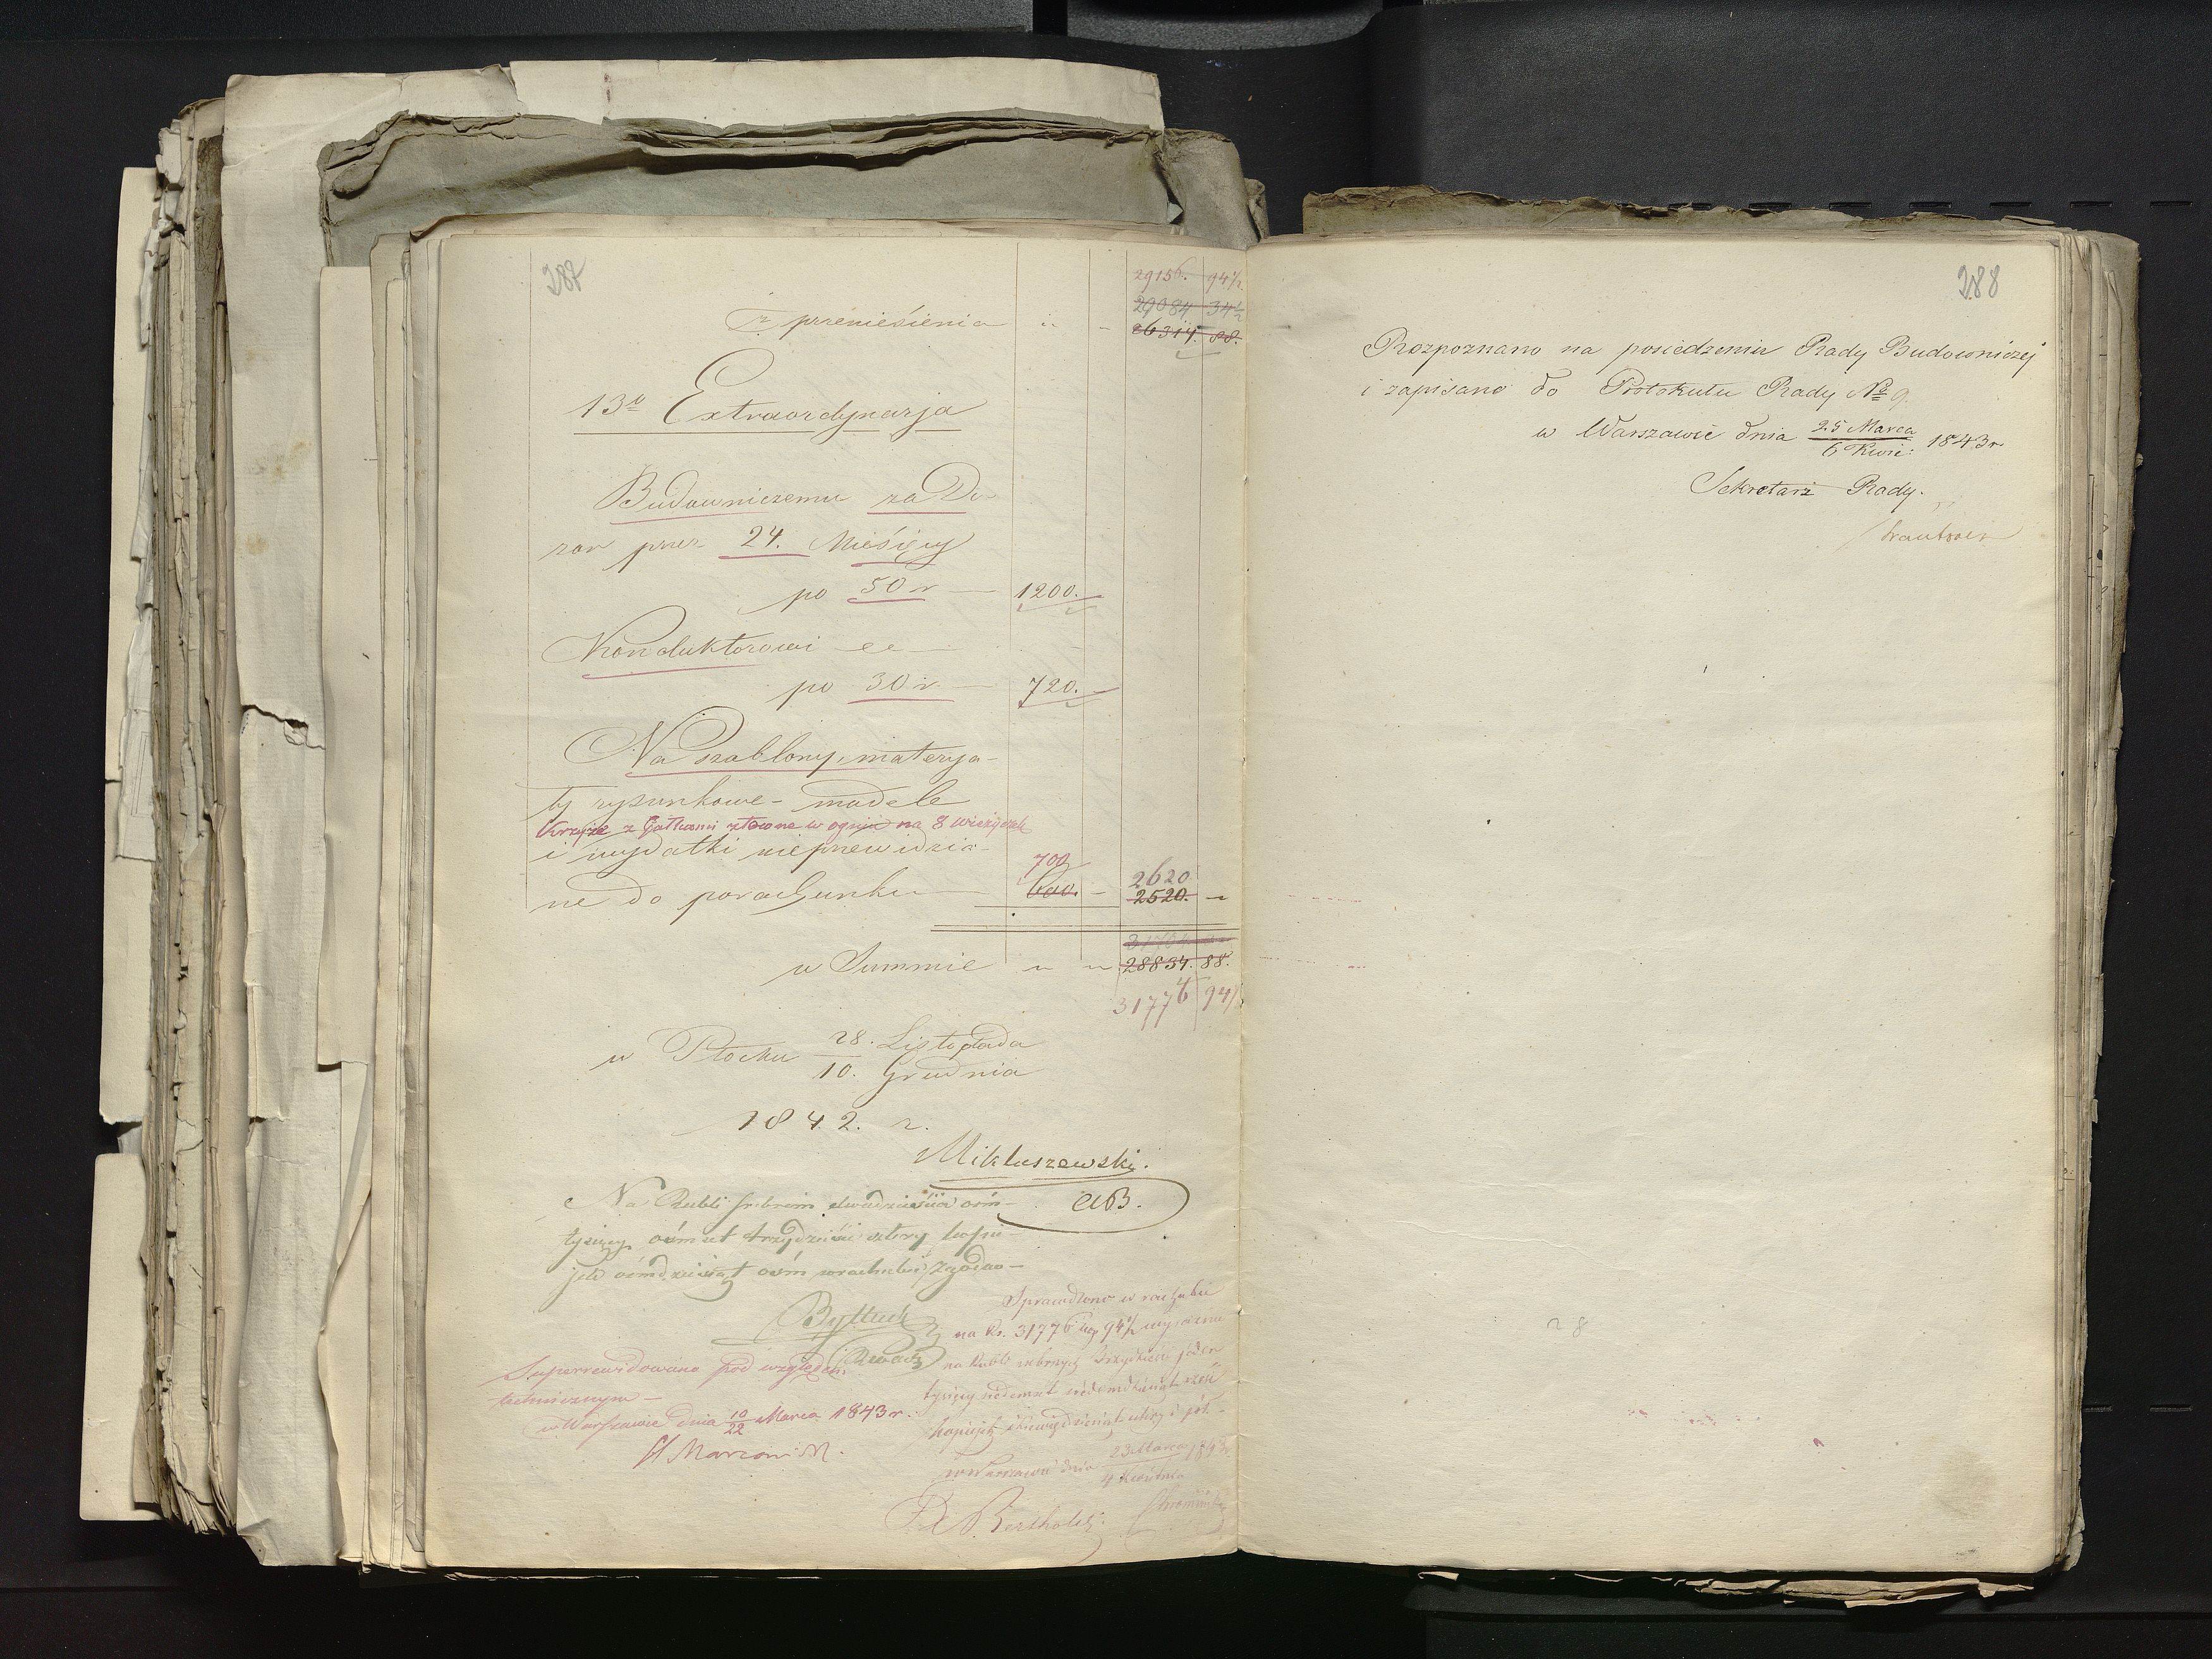 287
29156. 94 1/2
29084. 34 1/2
z przeniesienia " - 26314. 88.
13o Extraordynarja
Budowniczemu za Do-
zór przez 24. Miesięcy
po 50 r — 1200. -
Konduktorowi —
po 30 r — 720. -
Na szablony, materya-
ły rysunkowe - modele
Krzyże z Gałkami złocone w ogniu na 8 wieżyczek
i wydatki nieprzewidzia-
700
2620
ne do porachunku — 600. - 2520. -
w Summie " " 28834. 88.
31776 94 1/2
w Płocku 28. Listopada
10. Grudnia
1842. r.
Mikluszewski.
AB.
Na Rubli srebrem dwadzieścia ośm
tysięcy ośmset trzydzieści cztery kopie
jek ośmdziesiąt ośm w rachubie zgodno—
Superrewidowano pod względem
technicznym —
w Warszawie dnia 10/22 Marca 1843 r.
H Marconi
Sprawdzono w rachubie
na Rs. 31776 kop 94 1/2 wyraźnie
na Rubli srebrnych trzydzieści jeden
tysięcy siedemset siedemdziesiąt sześć
kopiejek dziewięćdziesiąt cztery i pół.-
w Warszawie dnia 23 Marca 1843 r.
4 Kwietnia
288
Rozpoznano na posiedzeniu Rady Budowniczej
i zapisano do Protokułu Rady No 9.
w Warszawie dnia 25 Marca 1843 r.
6 Kwie:
Sekretarz Rady.
28